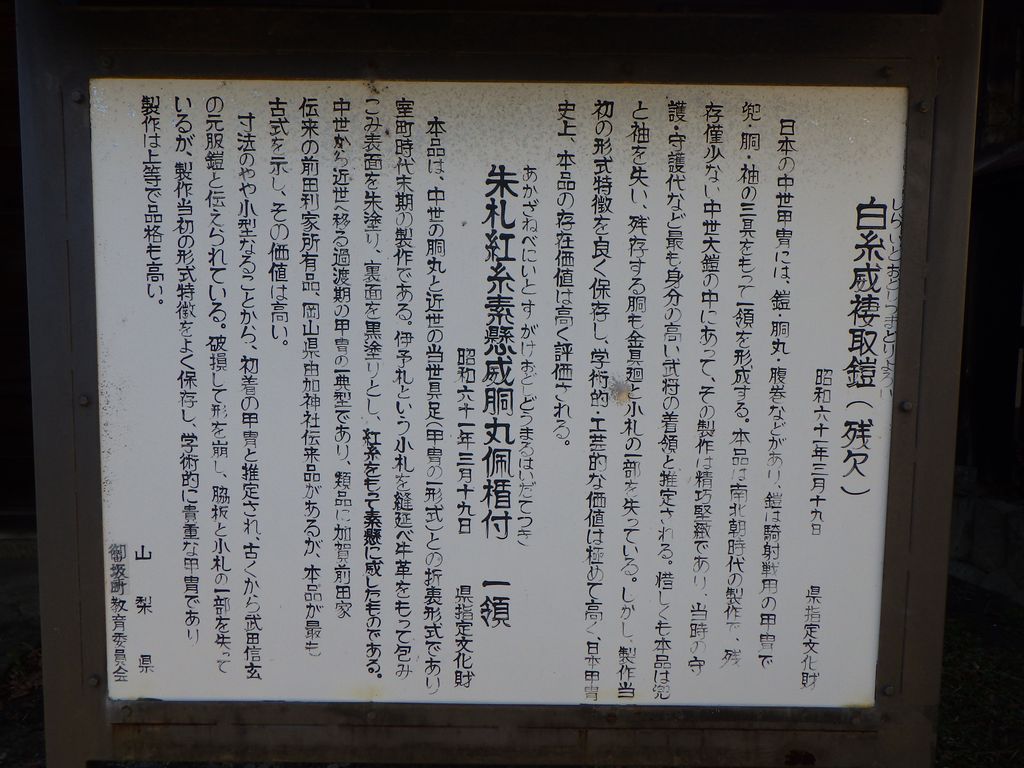 しらいとおどしつまどりよろい
白糸威褄取鎧（残欠）
昭和六十一年三月十九日　県指定文化財
日本の中世甲冑には、鎧・胴丸・腹巻などがあり、鎧は騎射戦用の甲冑で
兜・胴・袖の三具をもって一領を形成する。本品は南北朝時代の製作で、残
存僅少ない中世大鎧の中にあって、その製作は精巧堅緻であり、当時の守
護・守護代など最も身分の高い武将の着領と推定される。惜しくも本品は兜
と袖を失い、残存する胴も金具廻と小札の一部を失っている。しかし、製作当
初の形式特徴を良く保存し、学術的・工芸的な価値は極めて高く、日本甲冑
史上、本品の存在価値は高く評価される。
あかざねべにいとすがけおどしどうまるはいだてつき
朱札紅糸素懸威胴丸佩楯付　一領
昭和六十一年三月十九日　県指定文化財
本品は、中世の胴丸と近世の当世具足（甲冑の一形式）との折衷形式であり
室町時代末期の製作である。伊予札という小札を縫延べ牛革をもって包み
こみ表面を朱塗り、裏面を黒塗りとし、紅糸をもって素懸に威したものである。
中世から近世へ移る過渡期の甲冑の一典型であり、類品に加賀前田家
伝来の前田利家所有品、岡山県由加神社伝来品があるが、本品が最も
古式を示し、その価値は高い。
寸法のやや小型なることから、初着の甲冑と推定され、古くから武田信玄
の元服鎧と伝えられている。破損して形を崩し、脇板と小札の一部を失って
いるが、製作当初の形式特徴をよく保存し、学術的に貴重な甲冑であり
製作は上等で品格も高い。
山梨県
御坂町教育委員会